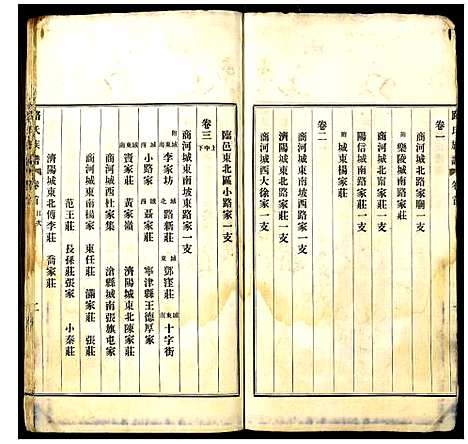 卷一
商河城北路家廟一支
附 樂陵城南路家莊
陽信城南路家莊一支
附 城東楊家莊
卷二
商河城東南坡路西一支
濟陽城東北路家莊一支
商河城西大徐家一支
路氏族譜 卷首
臨邑東北區小路家一支
卷三 上中下
商河城東南坡東路家一支
附 城東南 李家坊 城北 路新莊 城東 鄧窪莊 城東南 十字街
城西 小路家 城西 聶家莊 寧津縣王德厚家
城東南 賣家莊 黃家嶺 濟陽城東北陳家莊
商河城西杜家集 滄縣城南張旗屯家
商河城東南楊家 東任莊 滿家莊 張莊
范王莊 長孫莊張家 小秦莊
濟陽城東北傅李莊 喬家莊
路氏族譜 卷首 目次